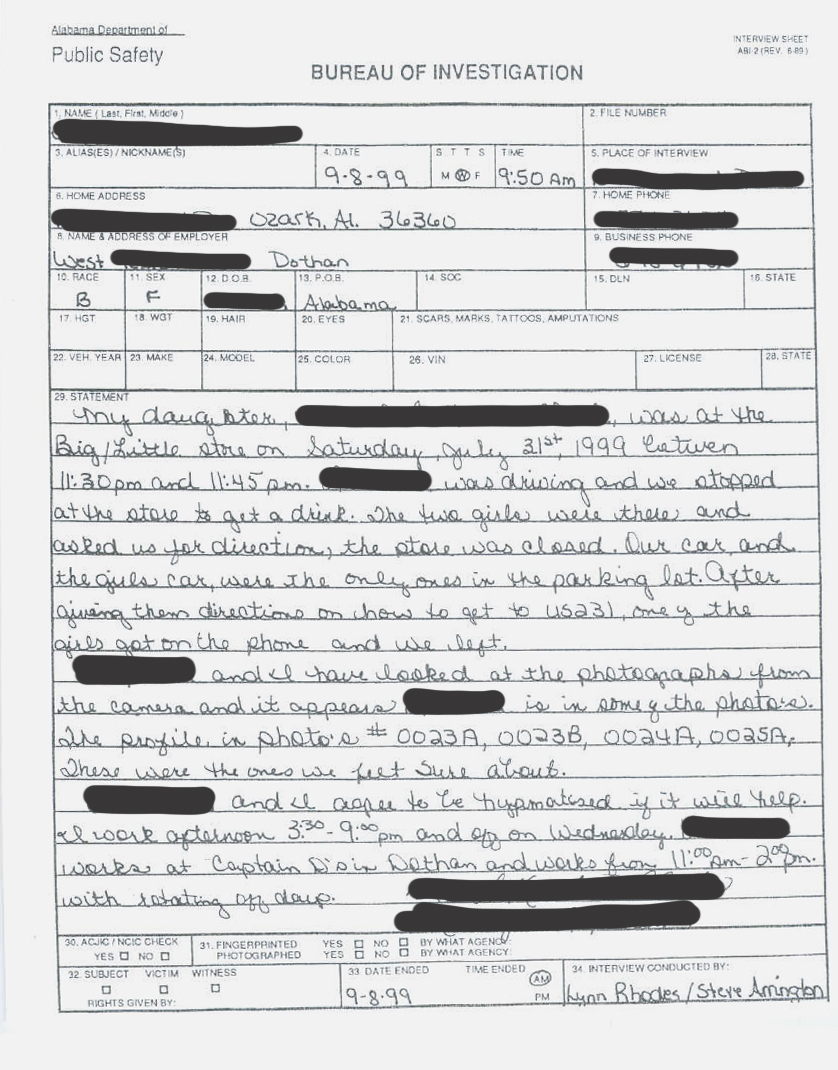 Alabama Department of
Public Safety
INTERVIEW SHEET
ABI-2 (REV. 6-89)
BUREAU OF INVESTIGATION
1. NAME (Last, First, Middle)
2. FILE NUMBER
3. ALIAS(ES) / NICKNAME(S)
4. DATE
S T T S
TIME
5. PLACE OF INTERVIEW
9-8-99
M W F
9:50 Am
6. HOME ADDRESS
7. HOME PHONE
Ozark, Al. 36360
8. NAME & ADDRESS OF EMPLOYER
9. BUSINESS PHONE
West Dothan
10. RACE
11. SEX
12. D.O.B.
13. P.O.B.
14. SOC
15. DLN
16. STATE
B
F
Alabama
17. HGT
18. WGT
19. HAIR
20. EYES
21. SCARS, MARKS, TATTOOS, AMPUTATIONS
22. VEH. YEAR
23. MAKE
24. MODEL
25. COLOR
26. VIN
27. LICENSE
28. STATE
29. STATEMENT
My daughter, , was at the
Big/Little store on Saturday, July 31st, 1999 betwen
11:30pm and 11:45pm. was driving and we stopped
at the store to get a drink. The two girls were there and
asked us for direction, the store was closed. Our car, and
the girls car, were the only ones in the parking lot. After
giving them directions on how to get to US231, one of the
girls got on the phone and we left.
and I have looked at the photographs from
the camera and it appears is in some of the photo's.
The profile in photo's # 0023A, 0023B, 0024A, 0025A,
These were the ones we feet sure about.
and I agree to be hypmatised if it will help.
I work afternoon 3:30-9:00pm and off on Wednesday.
works at Captain D's in Dothan and works from 11:00am-2:00pm.
with rotating off days.
30. ACJIC / NCIC CHECK
YES NO
31. FINGERPRINTED YES NO BY WHAT AGENCY:
PHOTOGRAPHED YES NO BY WHAT AGENCY:
32. SUBJECT VICTIM WITNESS
RIGHTS GIVEN BY:
33 DATE ENDED TIME ENDED
AM
PM
9-8-99
34. INTERVIEW CONDUCTED BY:
Lynn Rhodes / Steve Arrington